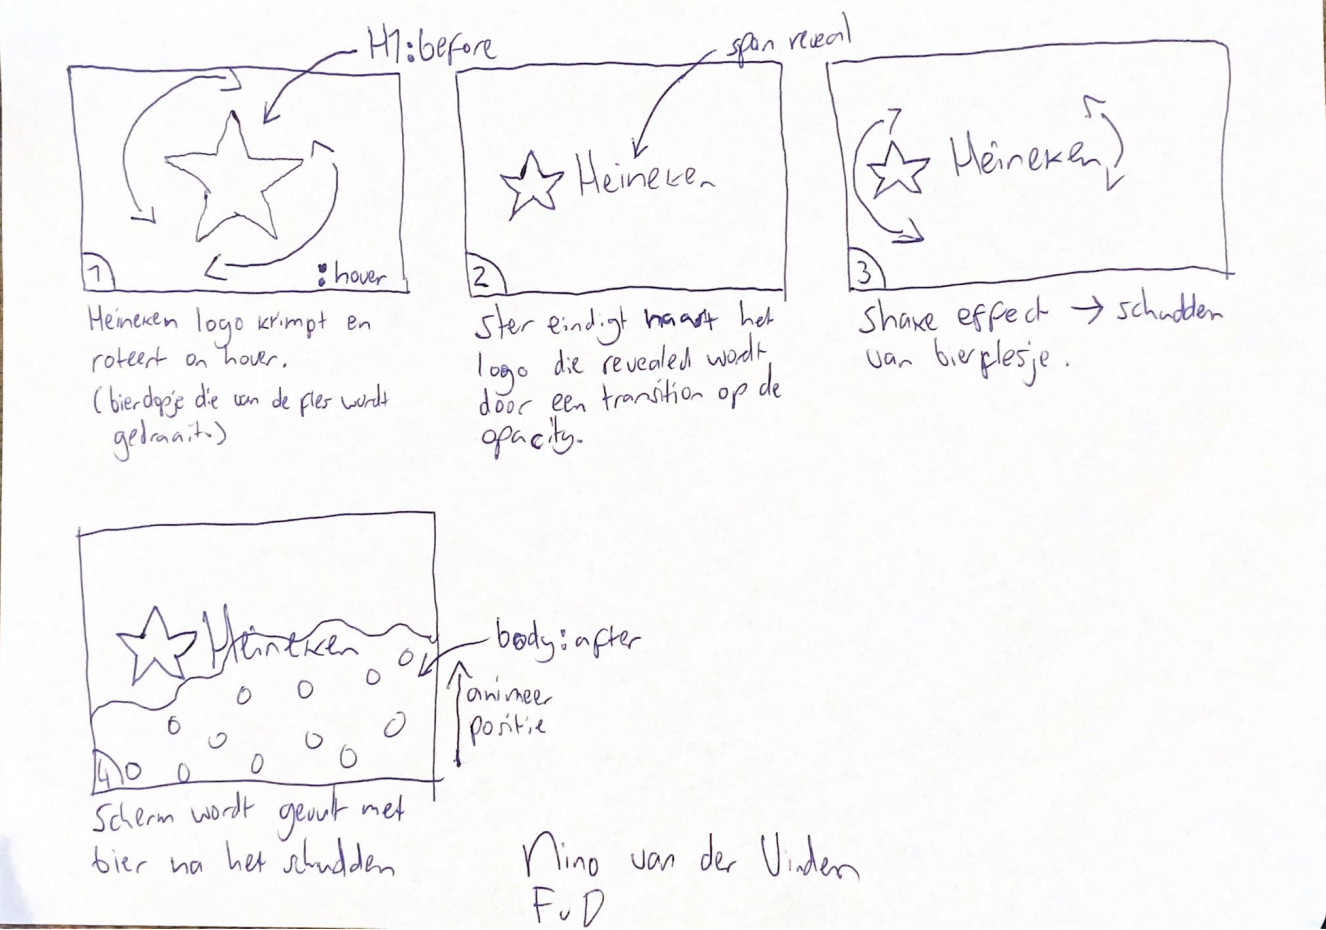 H1:before
:hover
1
Heineken logo krimpt en
roteert on hover.
(bierdopje die van de fles wordt
gedraait.)
span reveal
Heineken
2
Ster eindigt naast het
logo die revealed wordt
door een transition op de
opacity.
Heineken
3
Shake effect → schudden
van bierflesje.
Heineken
body:after
animeer
positie
4
Scherm wordt gevult met
bier na het schudden
Nino van der
FvD